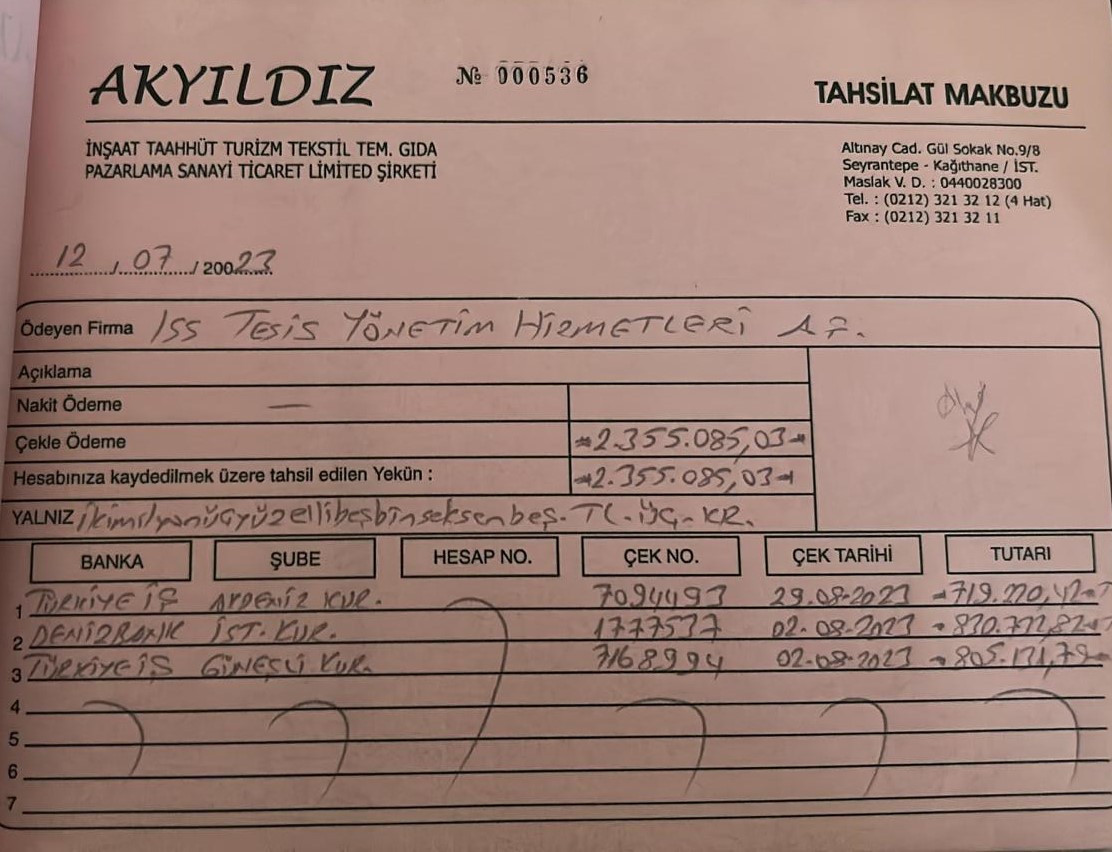 AKYILDIZ
№ 000536
TAHSİLAT MAKBUZU
İNŞAAT TAAHHÜT TURİZM TEKSTİL TEM. GIDA
PAZARLAMA SANAYİ TİCARET LİMİTED ŞİRKETİ
Altınay Cad. Gül Sokak No.9/8
Seyrantepe - Kağıthane / İST.
Maslak V. D. : 0440028300
Tel. : (0212) 321 32 12 (4 Hat)
Fax : (0212) 321 32 11
12 / 07 / 20023
Ödeyen Firma ISS TESİS YÖNETİM HİZMETLERİ A.Ş.
Açıklama
Nakit Ödeme —
Çekle Ödeme 2.355.085,03
Hesabınıza kaydedilmek üzere tahsil edilen Yekün : 2.355.085,03
YALNIZ ikimilyonüçyüzellibeşbinseksenbeş. TL. üç. KR.
BANKA ŞUBE HESAP NO. ÇEK NO. ÇEK TARİHİ TUTARI
1 TÜRKİYE İŞ KUR. 7094493 29.08.2023
2 DENİZBANK İST. KUR. 1777537 02.08.2023
3 TÜRKİYE İŞ GÜNEŞLİ KUR. 7168994 02.08.2023
4
5
6
7